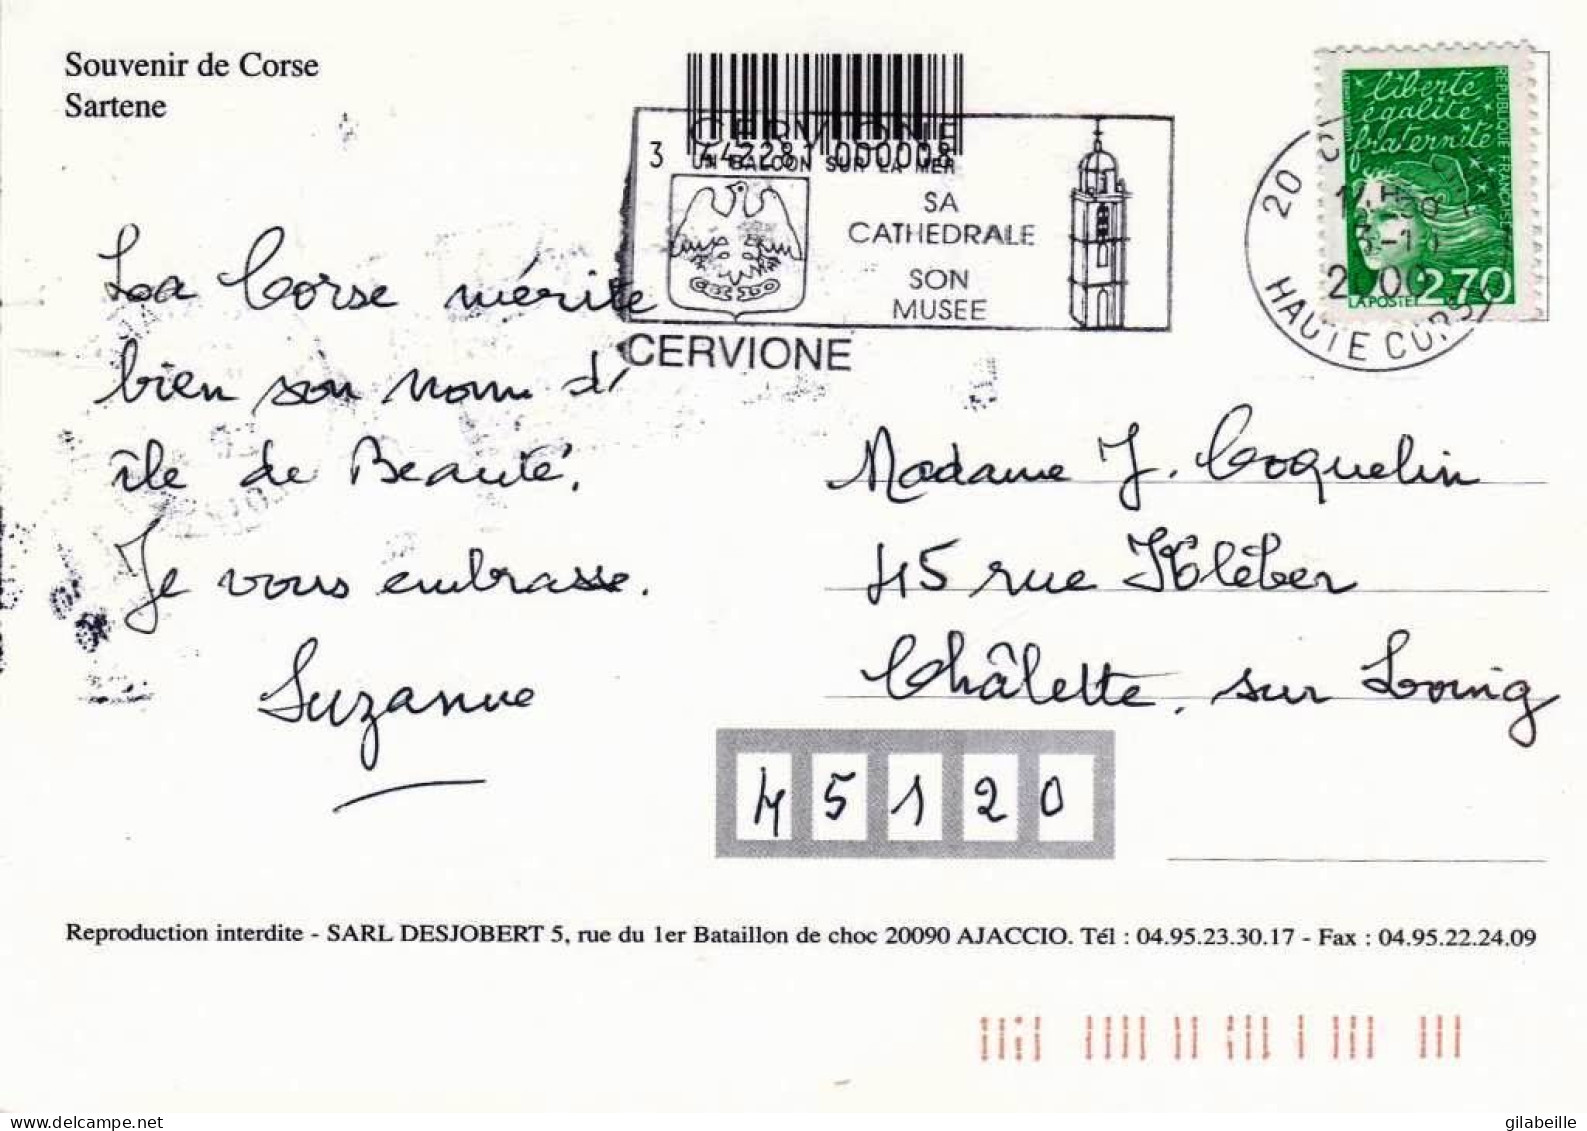 Souvenir de Corse
Sartene
3 442281 000008
CERVIONE
UN BALCON SUR LA MER
SA
CATHEDRALE
SON
MUSEE
CERVIONE
liberté
égalité
fraternité
REPUBLIQUE FRANÇAISE
LA POSTE
2,70
20
HAUTE CORSE
La Corse mérite
bien son nom d'
île de Beauté.
Je vous embrasse.
Suzanne
Madame J. Coquelin
45 rue Kléber
Châlette. sur Loing
45120
Reproduction interdite - SARL DESJOBERT 5, rue du 1er Bataillon de choc 20090 AJACCIO. Tél : 04.95.23.30.17 - Fax : 04.95.22.24.09
gilabeille